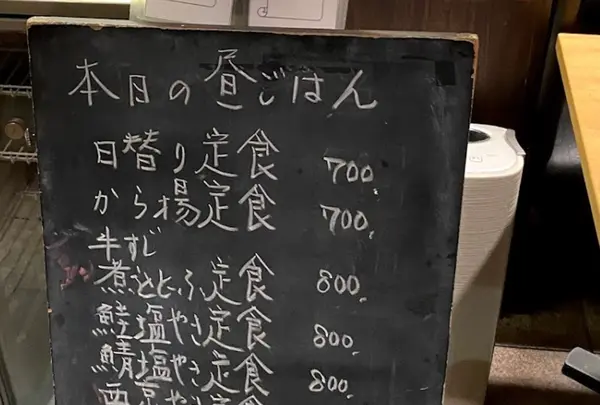 本日の昼ごはん
日替り定食 700.
から揚定食 700.
牛すじ
煮こどとふ定食 800.
鮭塩やき定食 800.
鯖塩やき定食 800.
西京やき定食